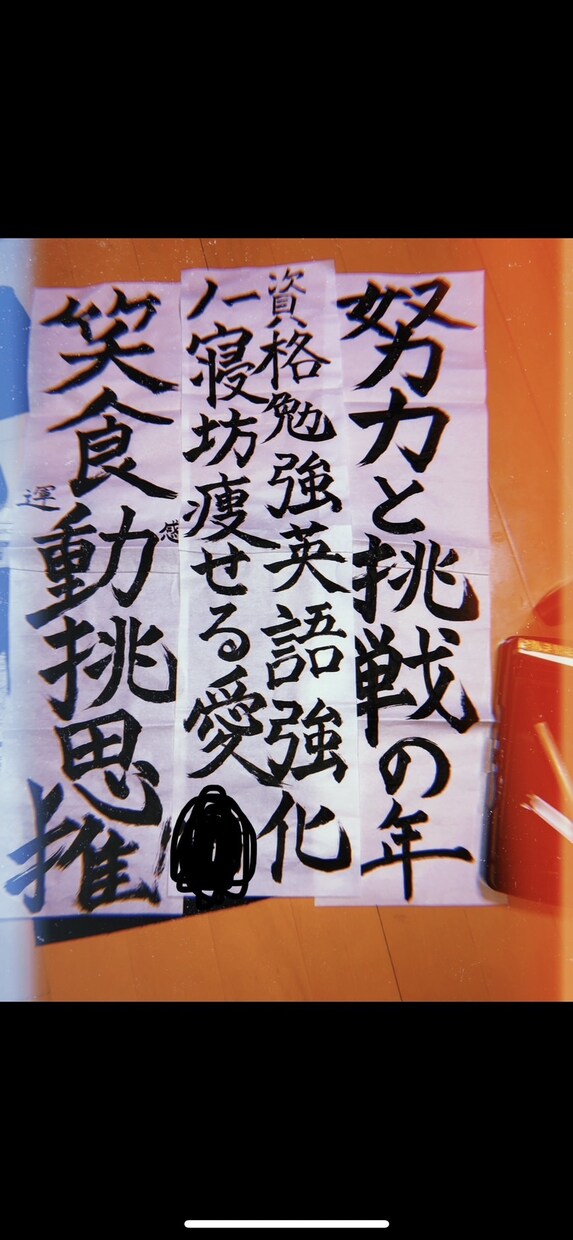 努力と挑戦の年
資格勉強英語強化
ノー寝坊痩せる愛
笑食動挑思推
感
運